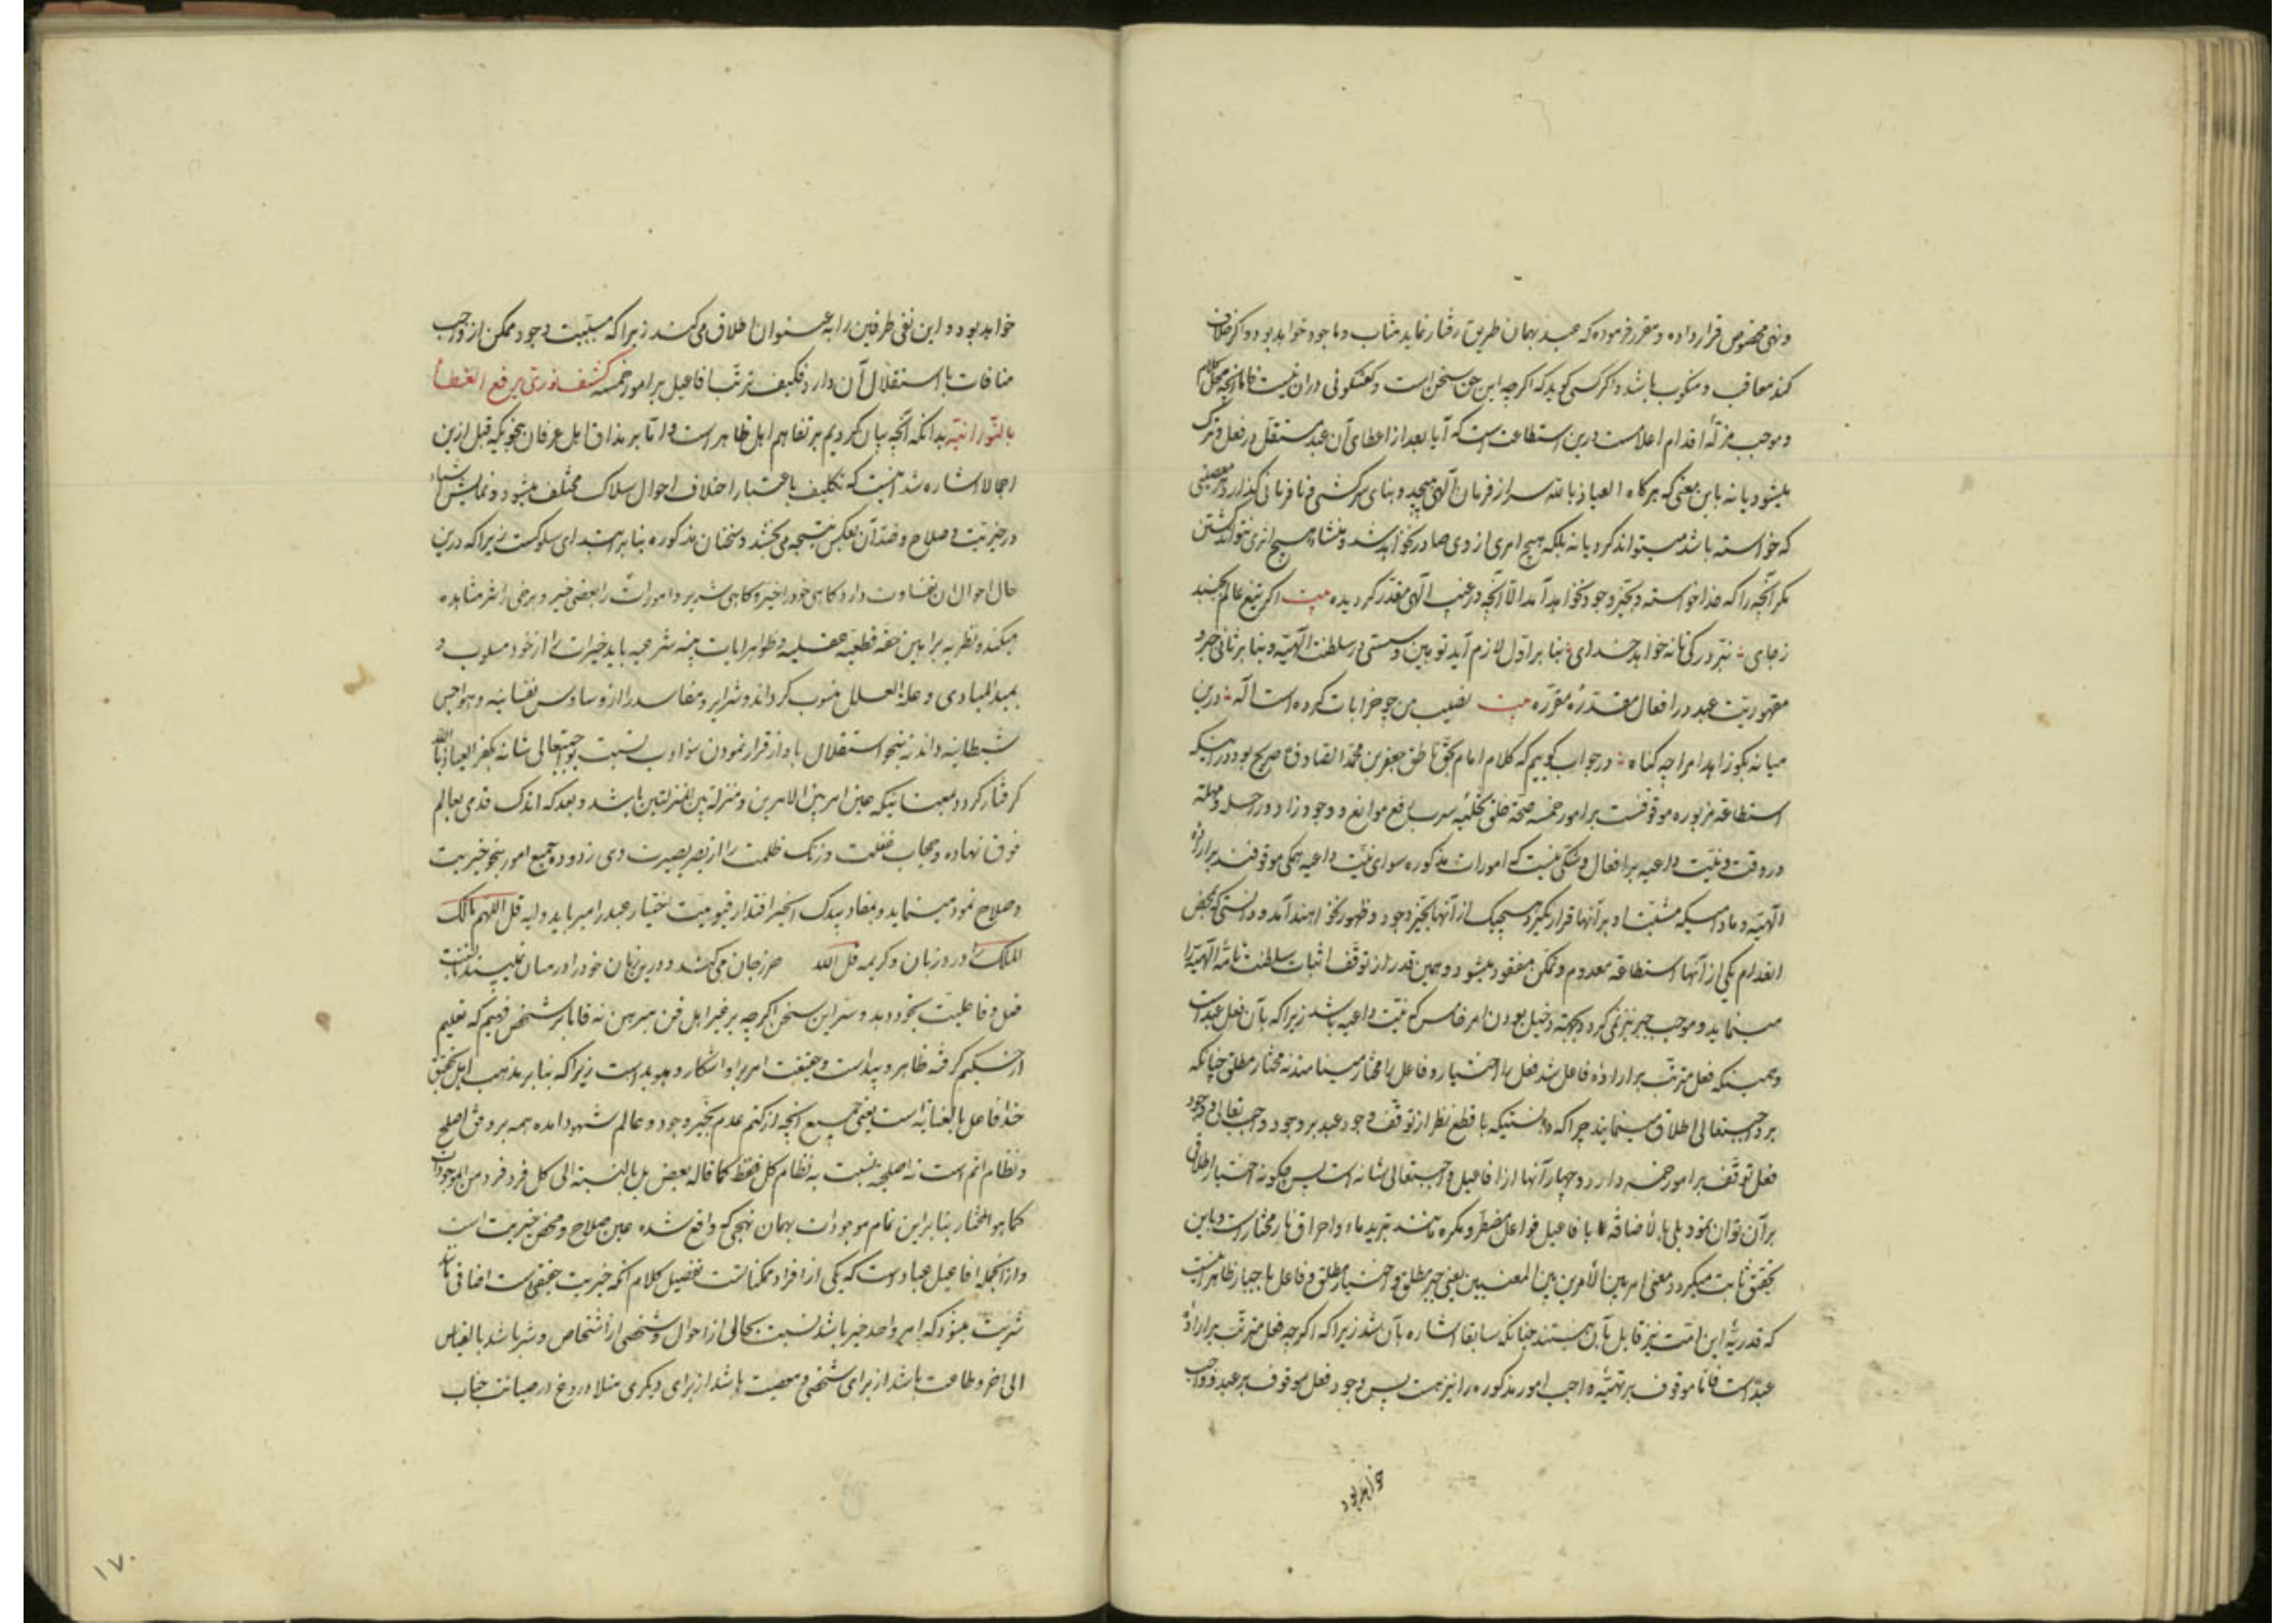 ونهی مخصوص قرار داده و مقرر فرموده که عبد بهمان طریق رفتار نماید مثاب و ماجود خواهد بود و اکر خلاف
کند معاقب و منکوب باشد و اکر کسی کوید که اکرچه این حق سخن است و کفتکوئی دران نیست فاما آنچه محل کلام
و موجب مزلّه اقدام اعلامست درین استطاعت است که آیا بعد از اعطای آن عبد مستقل در فعل و ترک
میشود یا نه باین معنی که هرکاه العیاذ بالله سر از فرمان آلهی پیچید و بنای سرکشی و نافرمانی کذارد هر معصیتی
که خواسته باشد میتواند کرد یا نه بلکه هیچ امری از وی صادر نخواهد شد و منشاء هیچ اثری نتواند کشتن
مکر آنچه را که خدا خواسته و بحیّز وجود نخواهد آمد الّا آنچه در غیب آلهی مقدّر کردیده بیت اکر تیغ عالم بجنبد
زجای نبرد رکی تا نه خواهد خدای بنا بر اوّل لازم آید توهین و سستی در سلطنت آلهیّه و بنا بر ثانی جبر و
مقهوریّت عبد در افعال مقدّره مقرّره بیت نصیب من چو خرابات کرده است آله درین
میانه بکو زاهدا مرا چه کناه در جواب کوییم که کلام امام بحق ناطق جعفر بن محمّد الصّادق ع صریح بود در اینکه
استطاعه مزبوره موقوفست بر امور خمسه صحّة خلق تخلیه سرب رفع موانع و وجود زاد و راحله و مهلة
در وقت و نیّت داعیه بر افعال و شکی نیست که امورات مذکوره سوای نیّت داعیه همکی موقوفند بر اراده
آلهیّه و مادامیکه مشیّت او بر آنها قرار نکیرد هیچیک از آنها بحیّز وجود و ظهور نخواهند آمد و دانستی که بمحض
انعدام یکی از آنها استطاعة معدوم و تمکّن مفقود میشود و همین قدر از توقّف اثبات سلطنت تامّه آلهیّه را
مینماید و موجب جبر نیز نمی کردد بجهة دخیل بودن امر خامس که نیّت داعیه باشد زیرا که بآن فعل عبد است
و همینکه فعل مترتّب بر اراده فاعل شد فعل را اختیار و فاعل را مختار مینامند نه مختار مطلق چنانکه
بر واجبتعالی اطلاق مینمایند چرا که دانستیکه با قطع نظر از توقّف وجود عبد بر وجود واجب تعالی در وجود
فعل توقّف بر امور خمسه دارد و چهار آنها از افاعیل واجبتعالی شانه است پس چکونه اختیار اطلاق
برآن توان نمود بلی بالاضافه با افاعیل فواعل مضطر و مکره مانند تبرید ماء و احراق نار مختار است و باین
تحقیق ثابت میکردد معنی امر بین الأمرین بین المعنیین یعنی جبر مطلق و اختیار مطلق و فاعل باجبار ظاهر است
که قدریّه این امّت نیز قایل بآن هستند چنانکه سابقا اشاره بآن شد زیرا که اکرچه فعل مترتّب بر اراده
عبد است فاما موقوف بر تهیّئه واجب امور مذکوره را نیز هست پس وجود فعل موقوف بر عبد و واجب
خواهد بود
خواهد بود و این نفی طرفین را به عنوان اطلاق می کند زیرا که مسبّبیت وجود ممکن از واجب
منافات با استقلال آن دارد فکیف ترتّب افاعیل بر امور خمسه کشف نوریّ یرفع الغطاء
بالنّورانیّه بدانکه آنچه بیان کردیم بر تفاهم اهل ظاهر است و امّا بر مذاق اهل عرفان بنحویکه قبل ازین
اجمالا اشاره شد اینست که تکلیف باعتبار اختلاف احوال سلاک مختلف میشود و نمایش اشیاء
در خیریّت و صلاح و ضدّ آن بعکس نتیجه می بخشد و سخنان مذکوره بنا بر ابتدای سلوکست زیرا که درین
حال احوال ان تفاوت دارد کاهی خود را خیّر و کاهی شریر و امورات را بعضی خیر و برخی را شر مشاهده
میکند و نظر به براهین حقّه قطعیّه عقلیه و ظواهر ایات بیّنه شرعیه باید خیرات را از خود مسلوب و
بمبدا المبادی و علة العلل منسوب کرداند و شرایر و مفاسد را از وساوس نفسانیه و هواجس
شیطانیه داند نه بنحو استقلال باو از قرار نمودن سؤ ادب نسبت بواجبتعالی شانه بکفر العیاذ بالله
کرفتار کردد بمعنائیکه عین امر بین الامرین و منزلة بین المنزلتین باشد و بعد که اندک قدمی بعالم
فوق نهاده و حجاب غفلت و زنک ظلمت را از بصر بصیرت وی زدوده جمیع امور بنحو خیریت
و صلاح نمود مینماید و بمفاد بیدک الخیر اقتدار قیومیت اختیار عبد را میرباید و آیه قل اللهم مالک
الملک را ورد زبان و کریمه قل الله حرز جان می کند و درین زمان خود را در میان نمی بیند تا نسبت
فعل و فاعلیّت بخود دهد و سرّ این سخن اکرچه بر غیر اهل فن مبرهن نه فاما بر شخص فهیم که تعلیم
از حکیم کرفته ظاهر و پیداست و حقیقت امر بر او اشکار و هویداست زیرا که بنا بر مذهب اهل تحقیق
خدا فاعل بالعنایة است یعنی جمیع آنچه از کتم عدم بحیّز وجود و عالم شهود امده همه بر وفق اصلح
و نظام اتم است نه اصلحیّة نسبت به نظام کل فقط کما قاله بعض بل بالنسبة الی کل فرد فرد من الموجودات
کما هو المختار بنا براین تمام موجودات بهمان نهجی که واقع شده عین صلاح و محض خیریت است
و از آنجمله افاعیل عباد است که یکی از افراد ممکناتست تفصیل کلام آنکه خیریت حقیقی است اضافی
شریّت میشود که امر واحد خیر باشد نسبت بحالی از احوال و شخصی از اشخاص و شر باشد بالقیاس
الی اخر و طاعت باشد از برای شخصی و معصیت باشد از برای دیکری مثلا دروغ در صیانت جناب
۱۷۰